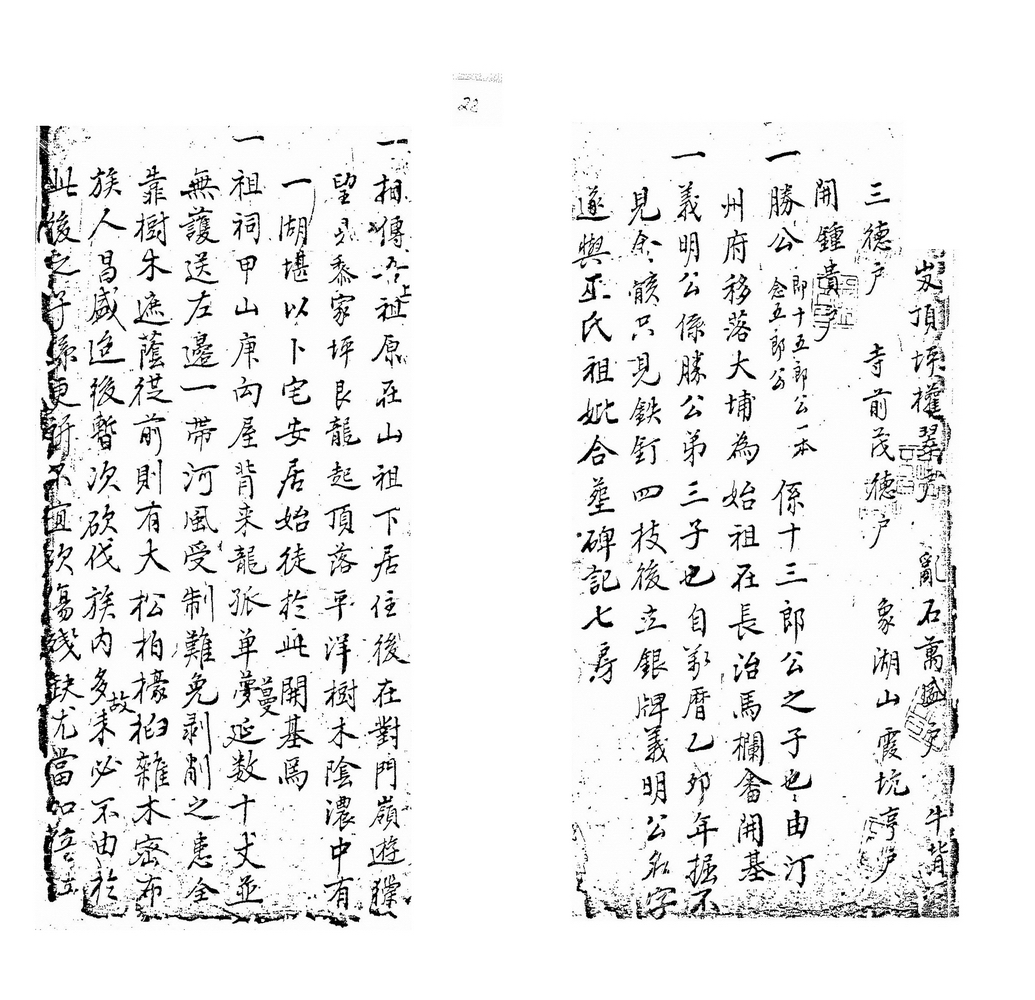 20
岌頂坪權 亂石萬盛 牛背
三德戶 寺前茂德戶 象湖山霞坑亨戶
開鍾貴
一勝公 即十五郎公一本 念五郎公 係十三郎公之子也由汀
州府移落大埔為始祖在長治馬欄畬開基
一義明公係勝公第三子也自萬曆乙卯年掘不
見金骸只見鉄釘四枝後立銀牌義明公名字
遂與巫氏祖妣合塟碑記七房
一相傳上祖原在山祖下居住後在對門嶺遊獵
望見黍家坪艮龍起頂落平洋樹木陰濃中有
一湖堪以卜宅安居始徒於此開基焉
一祖祠甲山庚向屋背來龍孤单蔓延数十丈並
無護送左邊一帶河風受制難免剥削之患全
靠樹木遮蔭從前則有大松柏檺桕雜木密布
族人昌盛迨後暫次砍伐族內多故未必不由於
此後之子孫更 不宜砍傷殘缺尤當加